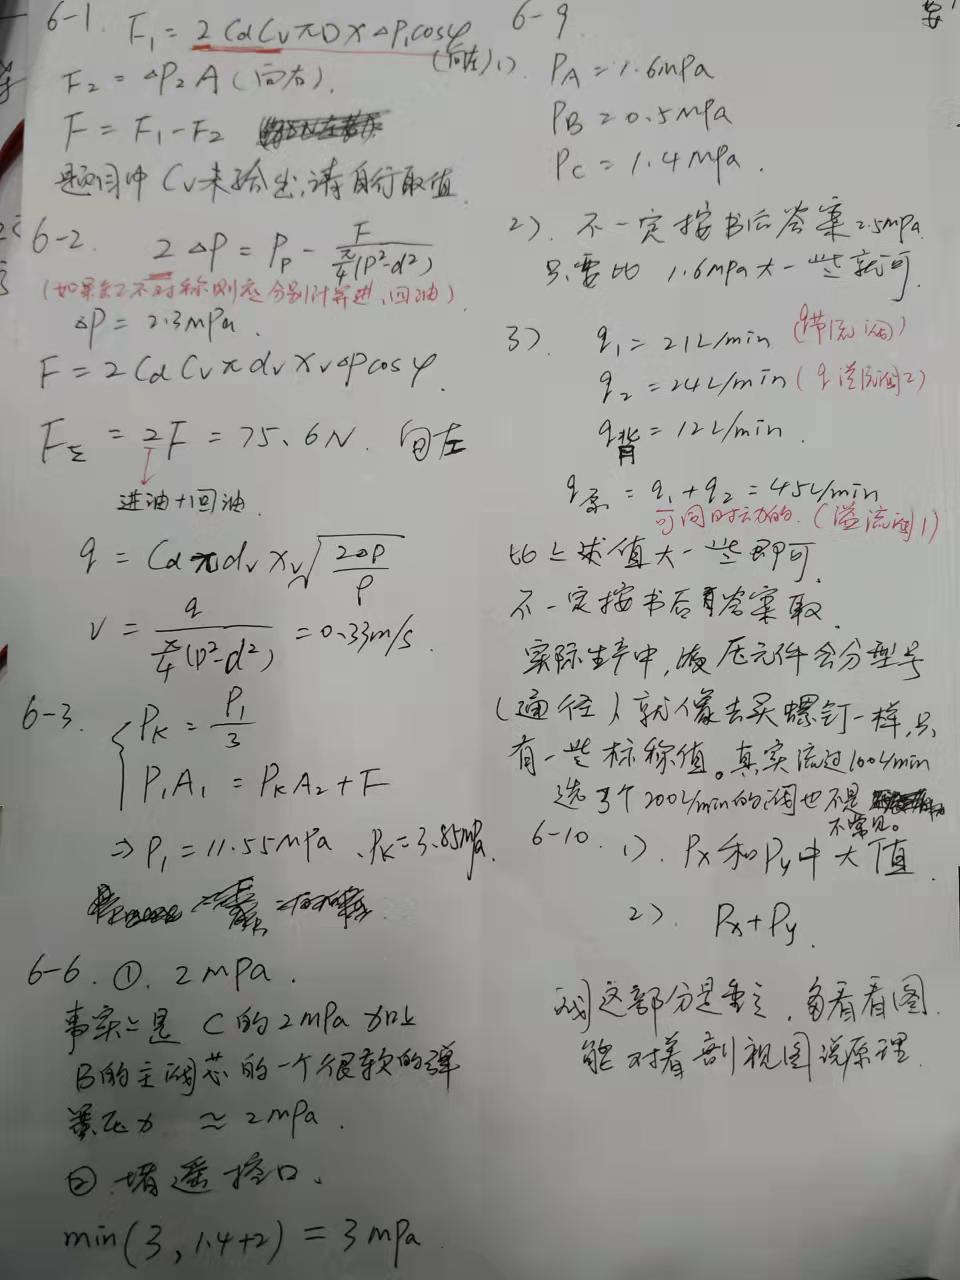 6-1. F₁ = 2CdCvπDx△P₁cosφ
(向左)
F₂ = △P₂A (向右).
F = F₁-F₂
题目中Cv未给出,请自行取值
6-2. 2△P = Pp - F/(π/4(D²-d²))
(如果阀不对称则应分别计算进、回油)
△P = 2.3mPa.
F = 2CdCvπdvxv△Pcosφ.
F_Σ = 2F = 75.6N. 向左
进油+回油.
q = Cdπdvxv√(2△P/ρ)
v = q/(π/4(D²-d²)) = 0.33m/s.
6-3. { PK = P₁/3
P₁A₁ = PKA₂+F
⇒ P₁ = 11.55mPa、PK=3.85mPa.
6-6. ①. 2mPa.
事实上是 C的2mPa加上
B的主阀芯的一个很软的弹
簧压力 ≈ 2mPa.
②.堵遥控口、
min(3, 1.4+2) = 3mPa.
6-9
1) PA = 1.6mPa
PB = 0.5mPa
PC = 1.4mPa.
2). 不一定按书后答案2.5mPa.
只要比 1.6mPa大一些就可.
3). q₁ = 21L/min (节流阀)
q₂ = 24L/min (q溢流阀2)
q背 = 12L/min.
q泵 = q₁+q₂ = 45L/min
可同时动的. (溢流阀1)
比上求值大一些即可.
不一定按书后答案取.
实际生产中,液压元件会分型号
(通径)就像去买螺钉一样,只
有一些标称值。真实流过100L/min
选了个200L/min的阀也不是
不常见。
6-10. 1). Px和Py中大值.
2). Px+Py.
阀这部分是重点,多看看图.
能对着剖视图说原理.